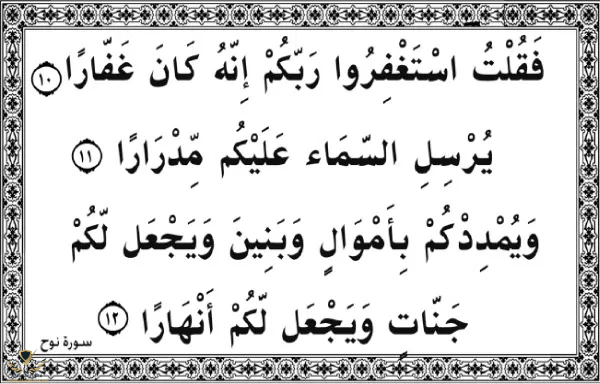 فَقُلْتُ اسْتَغْفِرُوا رَبَّكُمْ إِنَّهُ كَانَ غَفَّارًا ١٠
يُرْسِلِ السَّمَاء عَلَيْكُم مِّدْرَارًا ١١
وَيُمْدِدْكُمْ بِأَمْوَالٍ وَبَنِينَ وَيَجْعَل لَّكُمْ
جَنَّاتٍ وَيَجْعَل لَّكُمْ أَنْهَارًا ١٢
سورة نوح